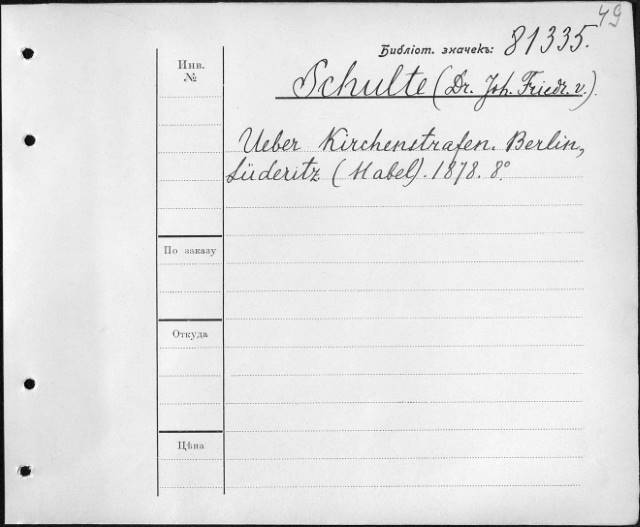 49
Библіот. значекъ: 81335.
Инв.
№
Schulte (Dr. Joh. Friedr. v.).
Ueber Kirchenstrafen. Berlin,
Lüderitz (Habel). 1878. 8°
По заказу
Откуда
Цѣна